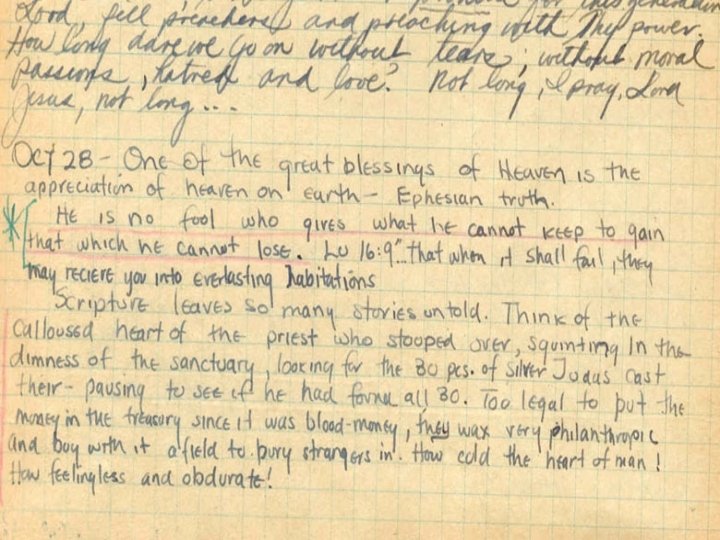 for this generation
Lord, fill preachers and preaching with Thy power.
How long dare we go on without tears, without moral
passions, hatred and love? Not long, I pray, Lord
Jesus, not long...
OCT 28 - One of the great blessings of Heaven is the
appreciation of heaven on earth - Ephesian truth.
He is no fool who gives what he cannot keep to gain
that which he cannot lose. Lu 16:9 "that when it shall fail, they
may reciere you into everlasting habitations
Scripture leaves so many stories untold. Think of the
calloused heart of the priest who stooped over, squinting in the
dimness of the sanctuary, looking for the 30 pcs. of silver Judas cast
their - pausing to see if he had found all 30. Too legal to put the
money in the treasury since it was blood-money, they wax very philanthropic
and buy with it a field to bury strangers in. How cold the heart of man!
How feelingless and obdurate!